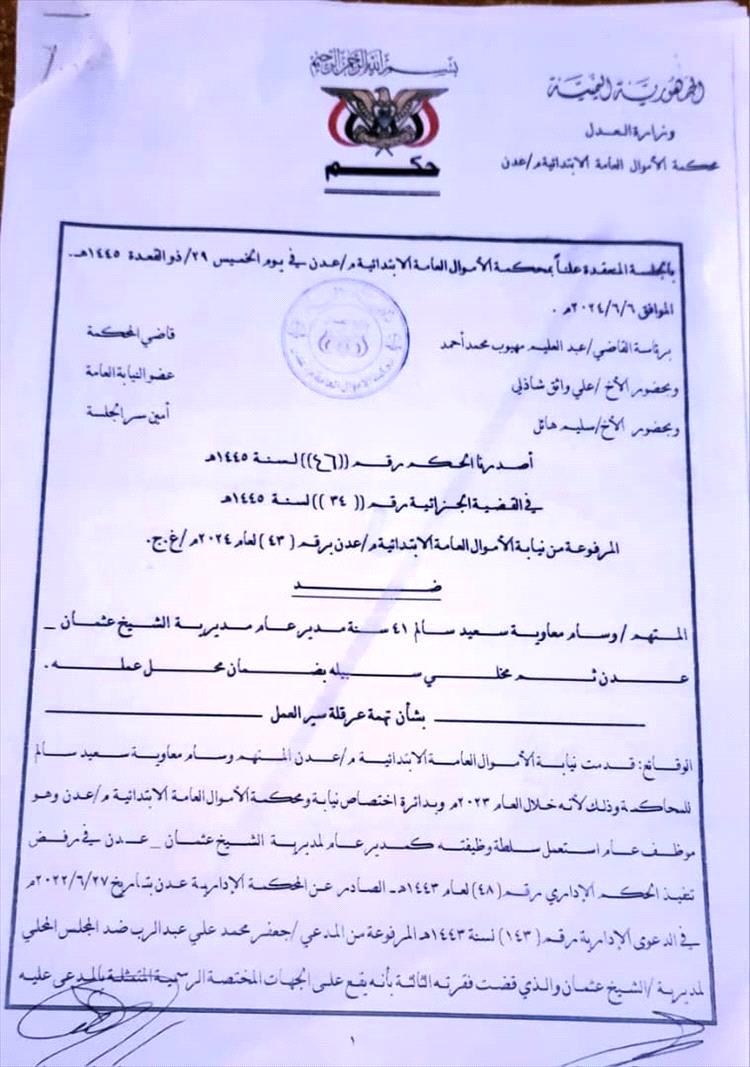 بسم الله الرحمن الرحيم
الجمهورية اليمنية
وزارة العدل
محكمة الأموال العامة الابتدائية م/عدن
حكم
بالجلسة المنعقدة علناً بمحكمة الأموال العامة الابتدائية م/عدن في يوم الخميس ٢٩/ذو القعدة ١٤٤٥هـ.
الموافق ٢٠٢٤/٦/٦م .
برئاسة القاضي/عبد العليم مهيوب محمد أحمد قاضي المحكمة
وبحضور الأخ /علي واثق شاذلي عضو النيابة العامة
وبحضور الأخ/سليم هائل أمين سر الجلسة
أصدرنا الحكم رقم ((٤٦)) لسنة ١٤٤٥هـ
في القضية الجزائية رقم (( ٣٤ )) لسنة ١٤٤٥هـ
المرفوعة من نيابة الأموال العامة الابتدائية م/عدن برقم ( ٤٣ ) لعام ٢٠٢٤م /غ.ج.
ضد
المتهم /وسام معاوية سعيد سالم ٤١ سنة مدير عام مديرية الشيخ عثمان _
عدن ثم مخلي سبيله بضمان محل عمله .
بشأن تهمة عرقلة سير العمل
الوقائع: قدمت نيابة الأموال العامة الابتدائية م/عدن المتهم وسام معاوية سعيد سالم
للمحاكمة وذلك لأنه خلال العام ٢٠٢٣م وبدائرة اختصاص نيابة ومحكمة الأموال العامة الابتدائية م/عدن وهو
موظف عام استعمل سلطة وظيفته كمدير عام لمديرية الشيخ عثمان _ عدن في رفض
تنفيذ الحكم الإداري رقم (٤٨) لعام ١٤٤٣هـ الصادر عن المحكمة الإدارية عدن بتاريخ ٢٠٢٢/٦/٢٧م
في الدعوى الإدارية رقم (١٤٣) لسنة ١٤٤٣هـ المرفوعة من المدعي /جعفر محمد علي عبد الرب ضد المجلس المحلي
لمديرية /الشيخ عثمان والذي قضت فقرته الثالثة بأنه يقع على الجهات المختصة الرسمية المتمثلة بالمدعى عليه
١